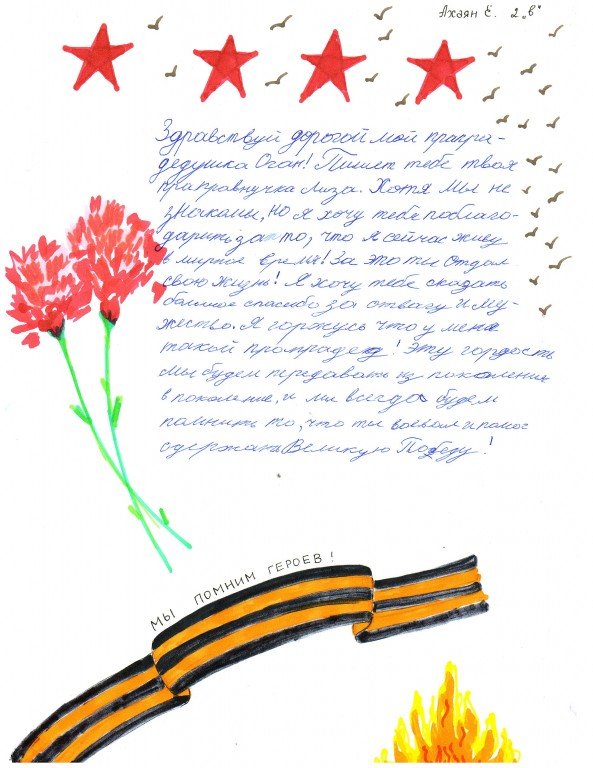 Ахаян Е. 2 „в"
Здравствуй дорогой мой прапра-
дедушка Оган! Пишет тебе твоя
прапправнучка Лиза. Хотя мы не
знакомы, но я хочу тебя поблаго-
дарить за то, что я сейчас живу
в мирное время! За это ты отдал
свою жизнь! Я хочу тебе сказать
большое спасибо за отвагу и му-
жество. Я горжусь что у меня
такой прапрадед! Эту гордость
мы будем передавать из поколения
в поколение, и мы всегда будем
помнить то, что ты воевал и помог
одержать Великую Победу!
МЫ ПОМНИМ ГЕРОЕВ!